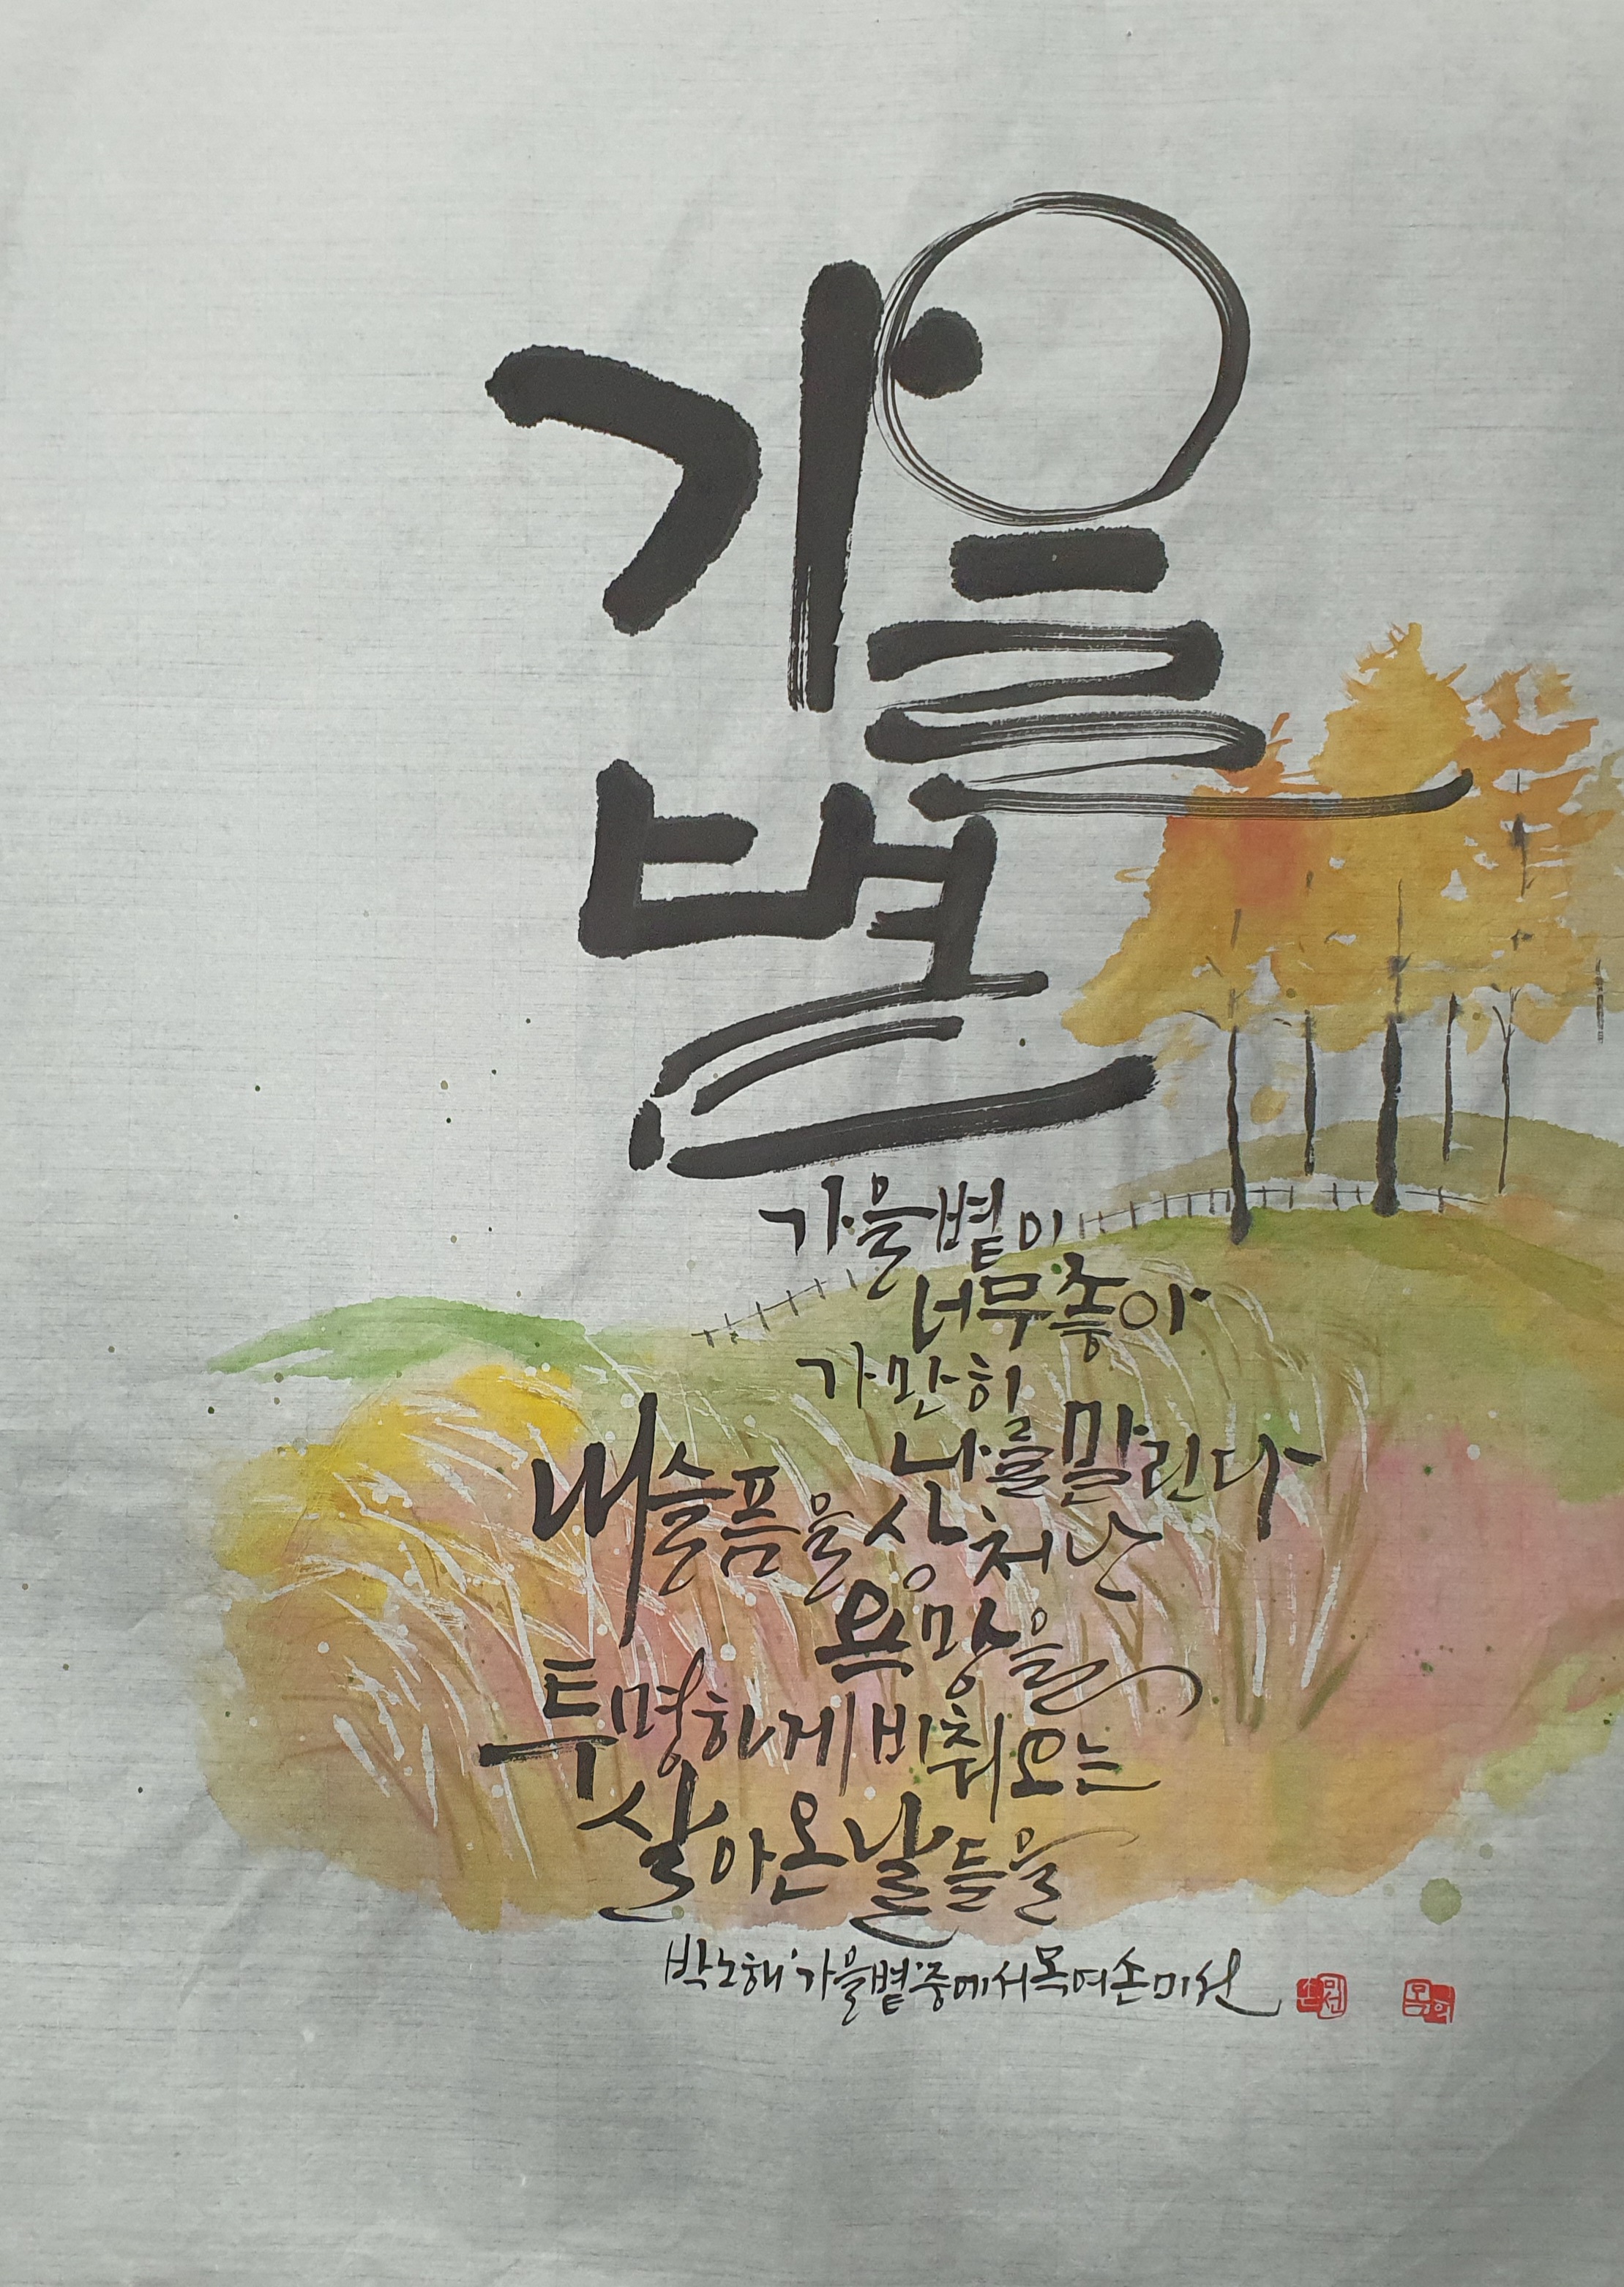 가을
볕
가을볕이
너무좋아
가만히
나를말린다
내슬픔을 상처난
욕망을
투명하게 비춰오는
살아온날들을
박노해'가을볕'중에서 목여손미선